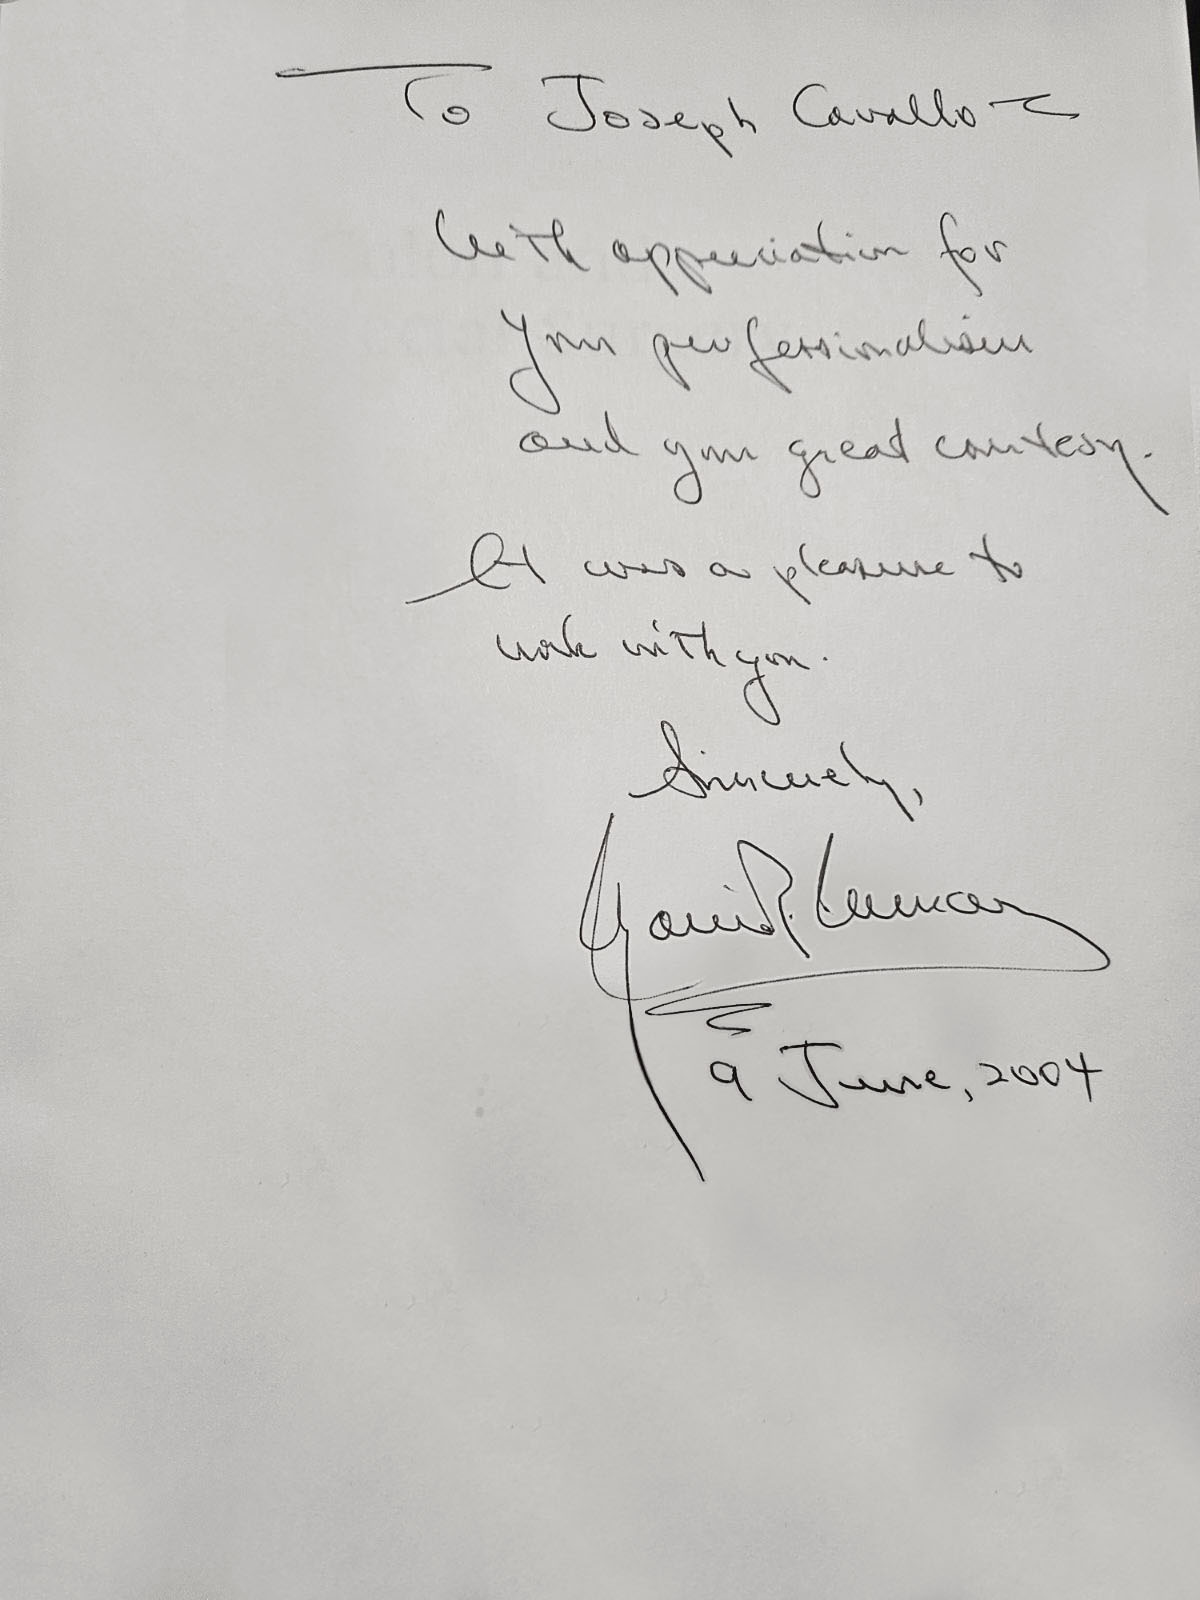 To Joseph Cavallo –
With appreciation for
your professionalism
and your great courtesy.
It was a pleasure to
work with you.
Sincerely,
9 June, 2004